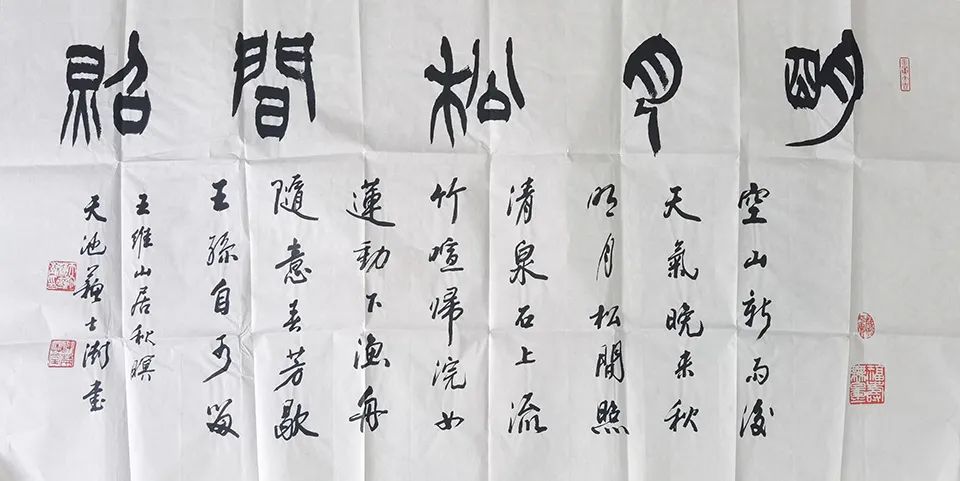 明月松間照
空山新雨後
天氣晚来秋
明月松間照
清泉石上流
竹喧歸浣女
蓮動下漁舟
隨意春芳歇
王孫自可留
王維山居秋暝
天池蘇士澍書